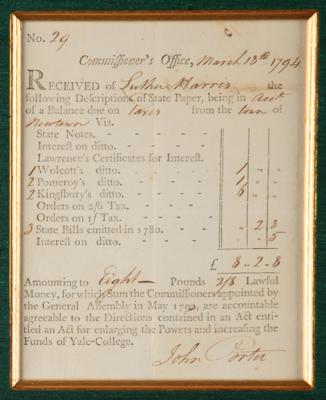 No. 29
Commissioner's Office, March 18th 1794
RECEIVED of Luther Harris the
following Descriptions of State Paper, being in Act
of a Balance due on taxes from the town of
Newtown Viz.
State Notes.
Interest on ditto.
Lawrence's Certificates for Interest.
1 Wolcott's ditto. 1 " "
2 Pomeroy's ditto. 1 " "
2 Kingsbury's ditto. 6 " "
Orders on 2/6 Tax.
Orders on 1/ Tax.
3 State Bills emitted in 1780. " 2 3
Interest on ditto. " " 5
£ 8 - 2 - 8
Amounting to Eight Pounds 2/8 Lawful
Money, for which Sum the Commissioners appointed by
the General Assembly in May 1792, are accountable
agreeable to the Directions contained in an Act enti-
tled an Act for enlarging the Powers and increasing the
Funds of Yale-College.
John Porter